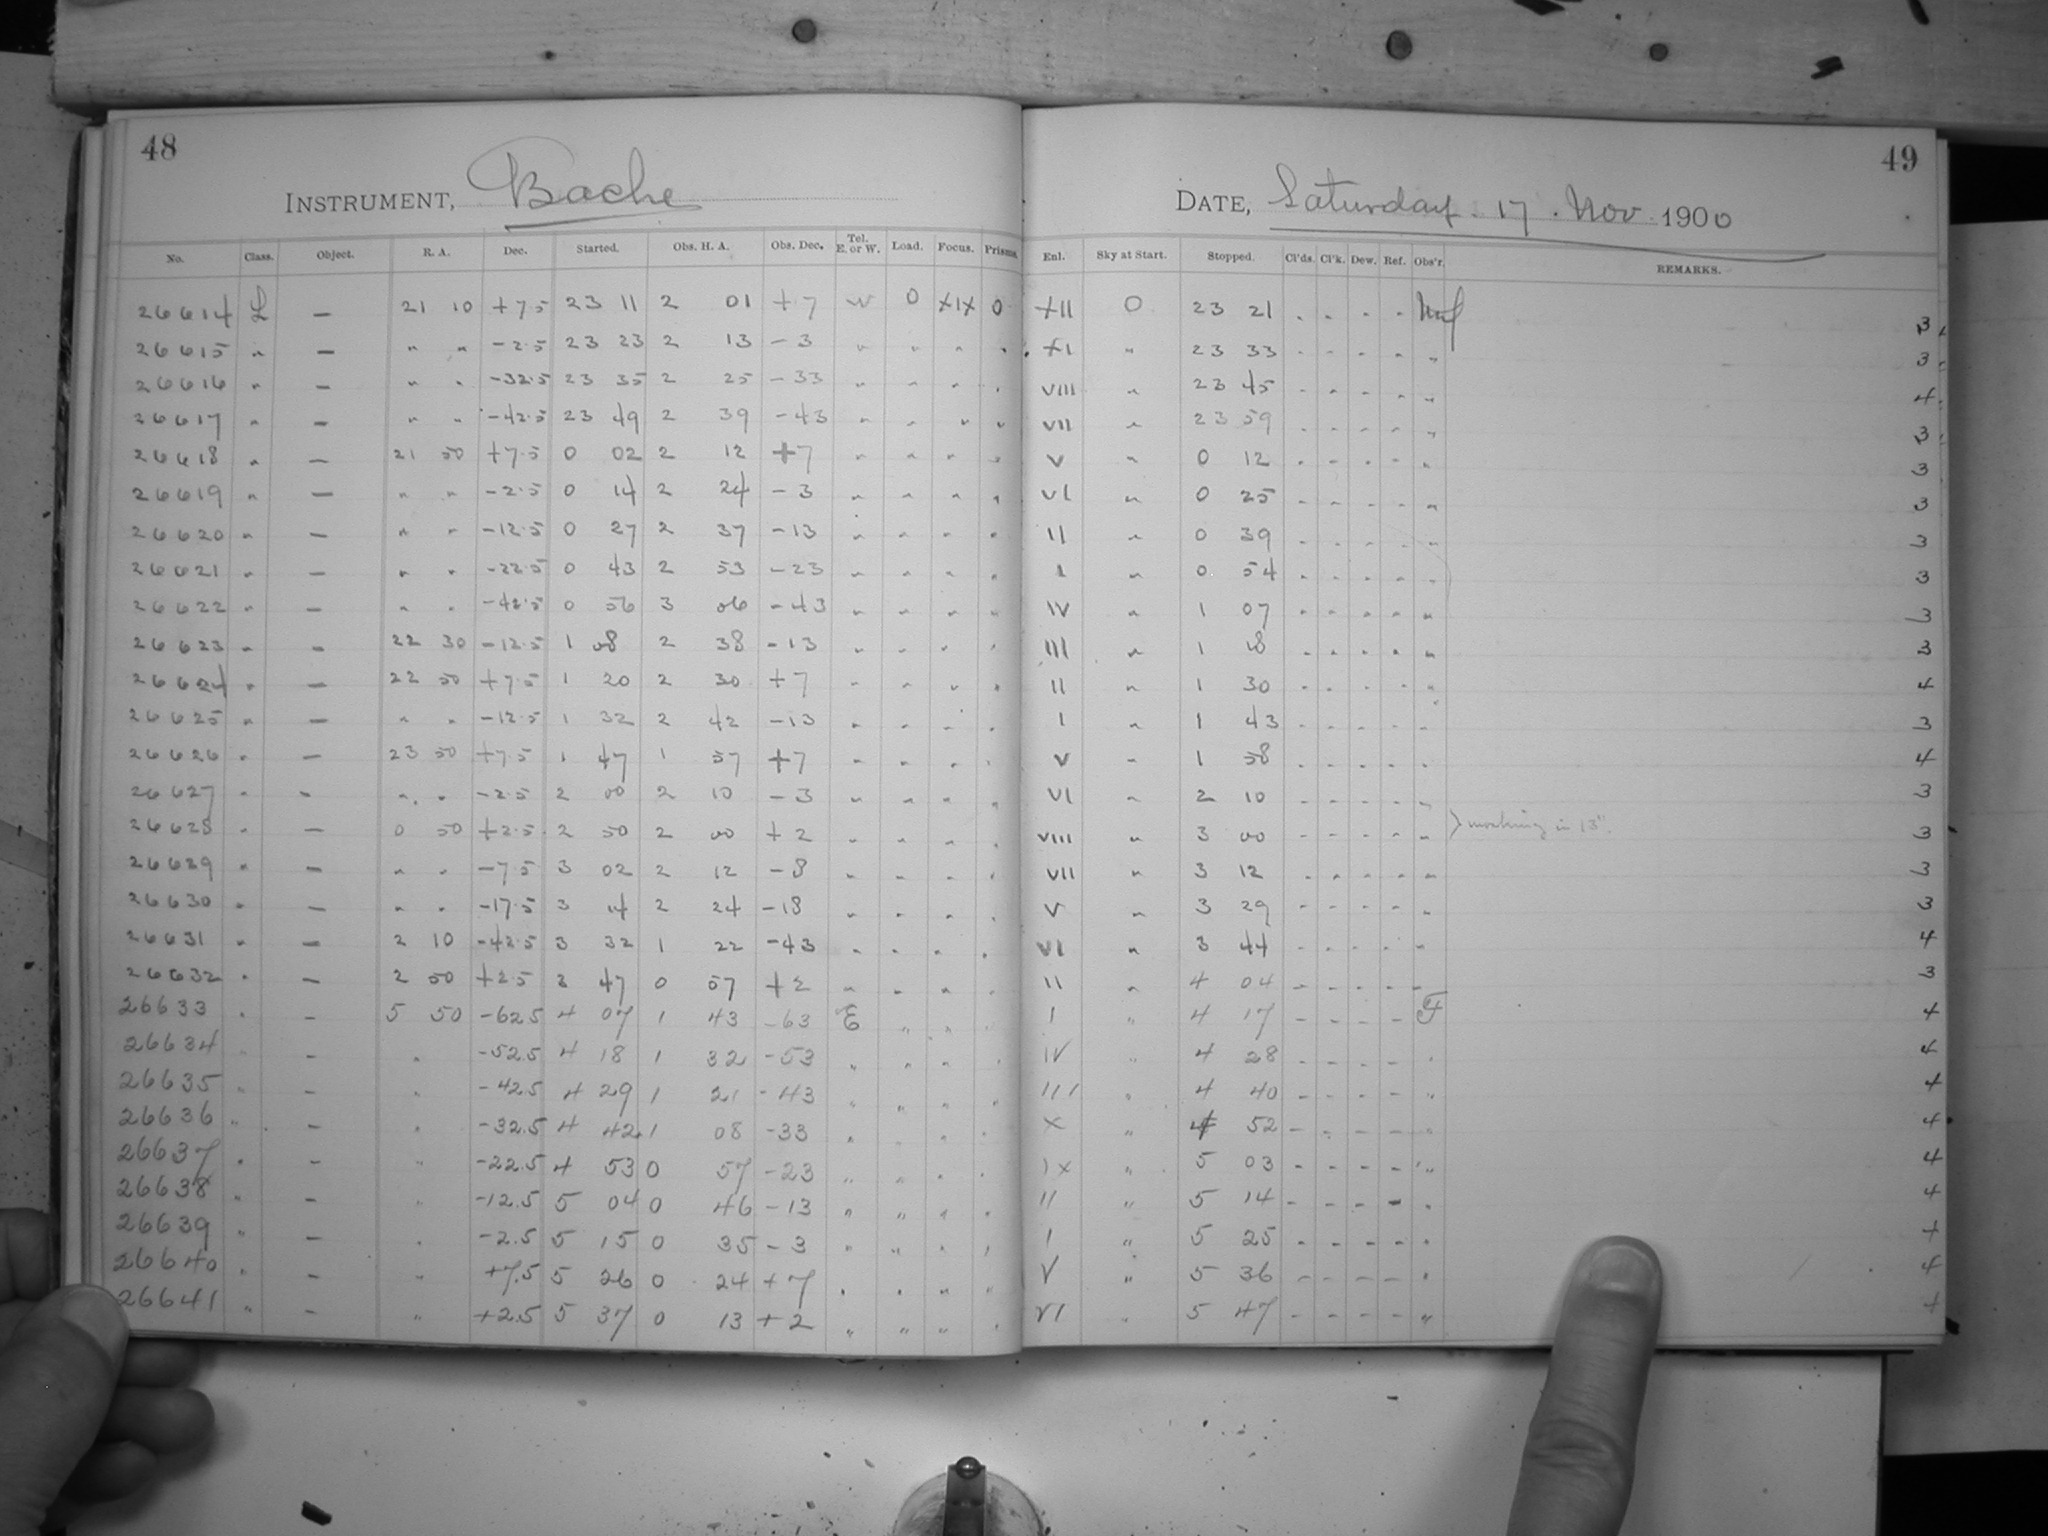 48
INSTRUMENT, Bache
No. Class. Object. R. A. Dec. Started. Obs. H. A. Obs. Dec. Tel. E. or W. Load. Focus. Prisms.
26614 L — 21 10 +7.5 23 11 2 01 +7 W 0 XIX 0
26615 " — " " -2.5 23 23 2 13 -3 " " " "
26616 " — " " -32.5 23 35 2 25 -33 " " " "
26617 " — " " -42.5 23 49 2 39 -43 " " " "
26618 " — 21 50 +7.5 0 02 2 12 +7 " " " "
26619 " — " " -2.5 0 14 2 24 -3 " " " "
26620 " — " " -12.5 0 27 2 37 -13 " " " "
26621 " — " " -22.5 0 43 2 53 -23 " " " "
26622 " — " " -42.5 0 56 3 06 -43 " " " "
26623 " — 22 30 -12.5 1 08 2 38 -13 " " " "
26624 " — 22 50 +7.5 1 20 2 30 +7 " " " "
26625 " — " " -12.5 1 32 2 42 -13 " " " "
26626 " — 23 50 +7.5 1 47 1 57 +7 " " " "
26627 " — " " -2.5 2 00 2 10 -3 " " " "
26628 " — 0 50 +2.5 2 50 2 00 +2 " " " "
26629 " — " " -7.5 3 02 2 12 -8 " " " "
26630 " — " " -17.5 3 14 2 24 -18 " " " "
26631 " — 2 10 -42.5 3 32 1 22 -43 " " " "
26632 " — 2 50 +2.5 3 47 0 57 +2 " " " "
26633 " — 5 50 -62.5 4 07 1 43 -63 E " " "
26634 " — " -52.5 4 18 1 32 -53 " " " "
26635 " — " -42.5 4 29 1 21 -43 " " " "
26636 " — " -32.5 4 42 1 08 -33 " " " "
26637 " — " -22.5 4 53 0 57 -23 " " " "
26638 " — " -12.5 5 04 0 46 -13 " " " "
26639 " — " -2.5 5 15 0 35 -3 " " " "
26640 " — " +7.5 5 26 0 24 +7 " " " "
26641 " — " +2.5 5 37 0 13 +2 " " " "
49
DATE, Saturday. 17. Nov. 1900
Enl. Sky at Start. Stopped. Cl'ds. Cl'k. Dew. Ref. Obs'r. REMARKS.
XII 0 23 21 - - - - 3
XI " 23 33 - - - - " 3
VIII " 23 45 - - - - " 4
VII " 23 59 - - - - " 3
V " 0 12 - - - - " 3
VI " 0 25 - - - - " 3
II " 0 39 - - - - " 3
I " 0 54 - - - - " 3
IV " 1 07 - - - - " 3
III " 1 18 - - - - " 3
II " 1 30 - - - - " 4
I " 1 43 - - - - " 3
V " 1 58 - - - - " 4
VI " 2 10 - - - - " 3
VIII " 3 00 - - - - " } working in 13". 3
VII " 3 12 - - - - " 3
V " 3 29 - - - - " 3
VI " 3 44 - - - - " 4
II " 4 04 - - - - - 3
I " 4 17 - - - - F 4
IV " 4 28 - - - - " 4
III " 4 40 - - - - " 4
X " 4 52 - - - - " 4
IX " 5 03 - - - - " 4
II " 5 14 - - - - " 4
I " 5 25 - - - - " 4
V " 5 36 - - - - " 4
VI " 5 47 - - - - " 4